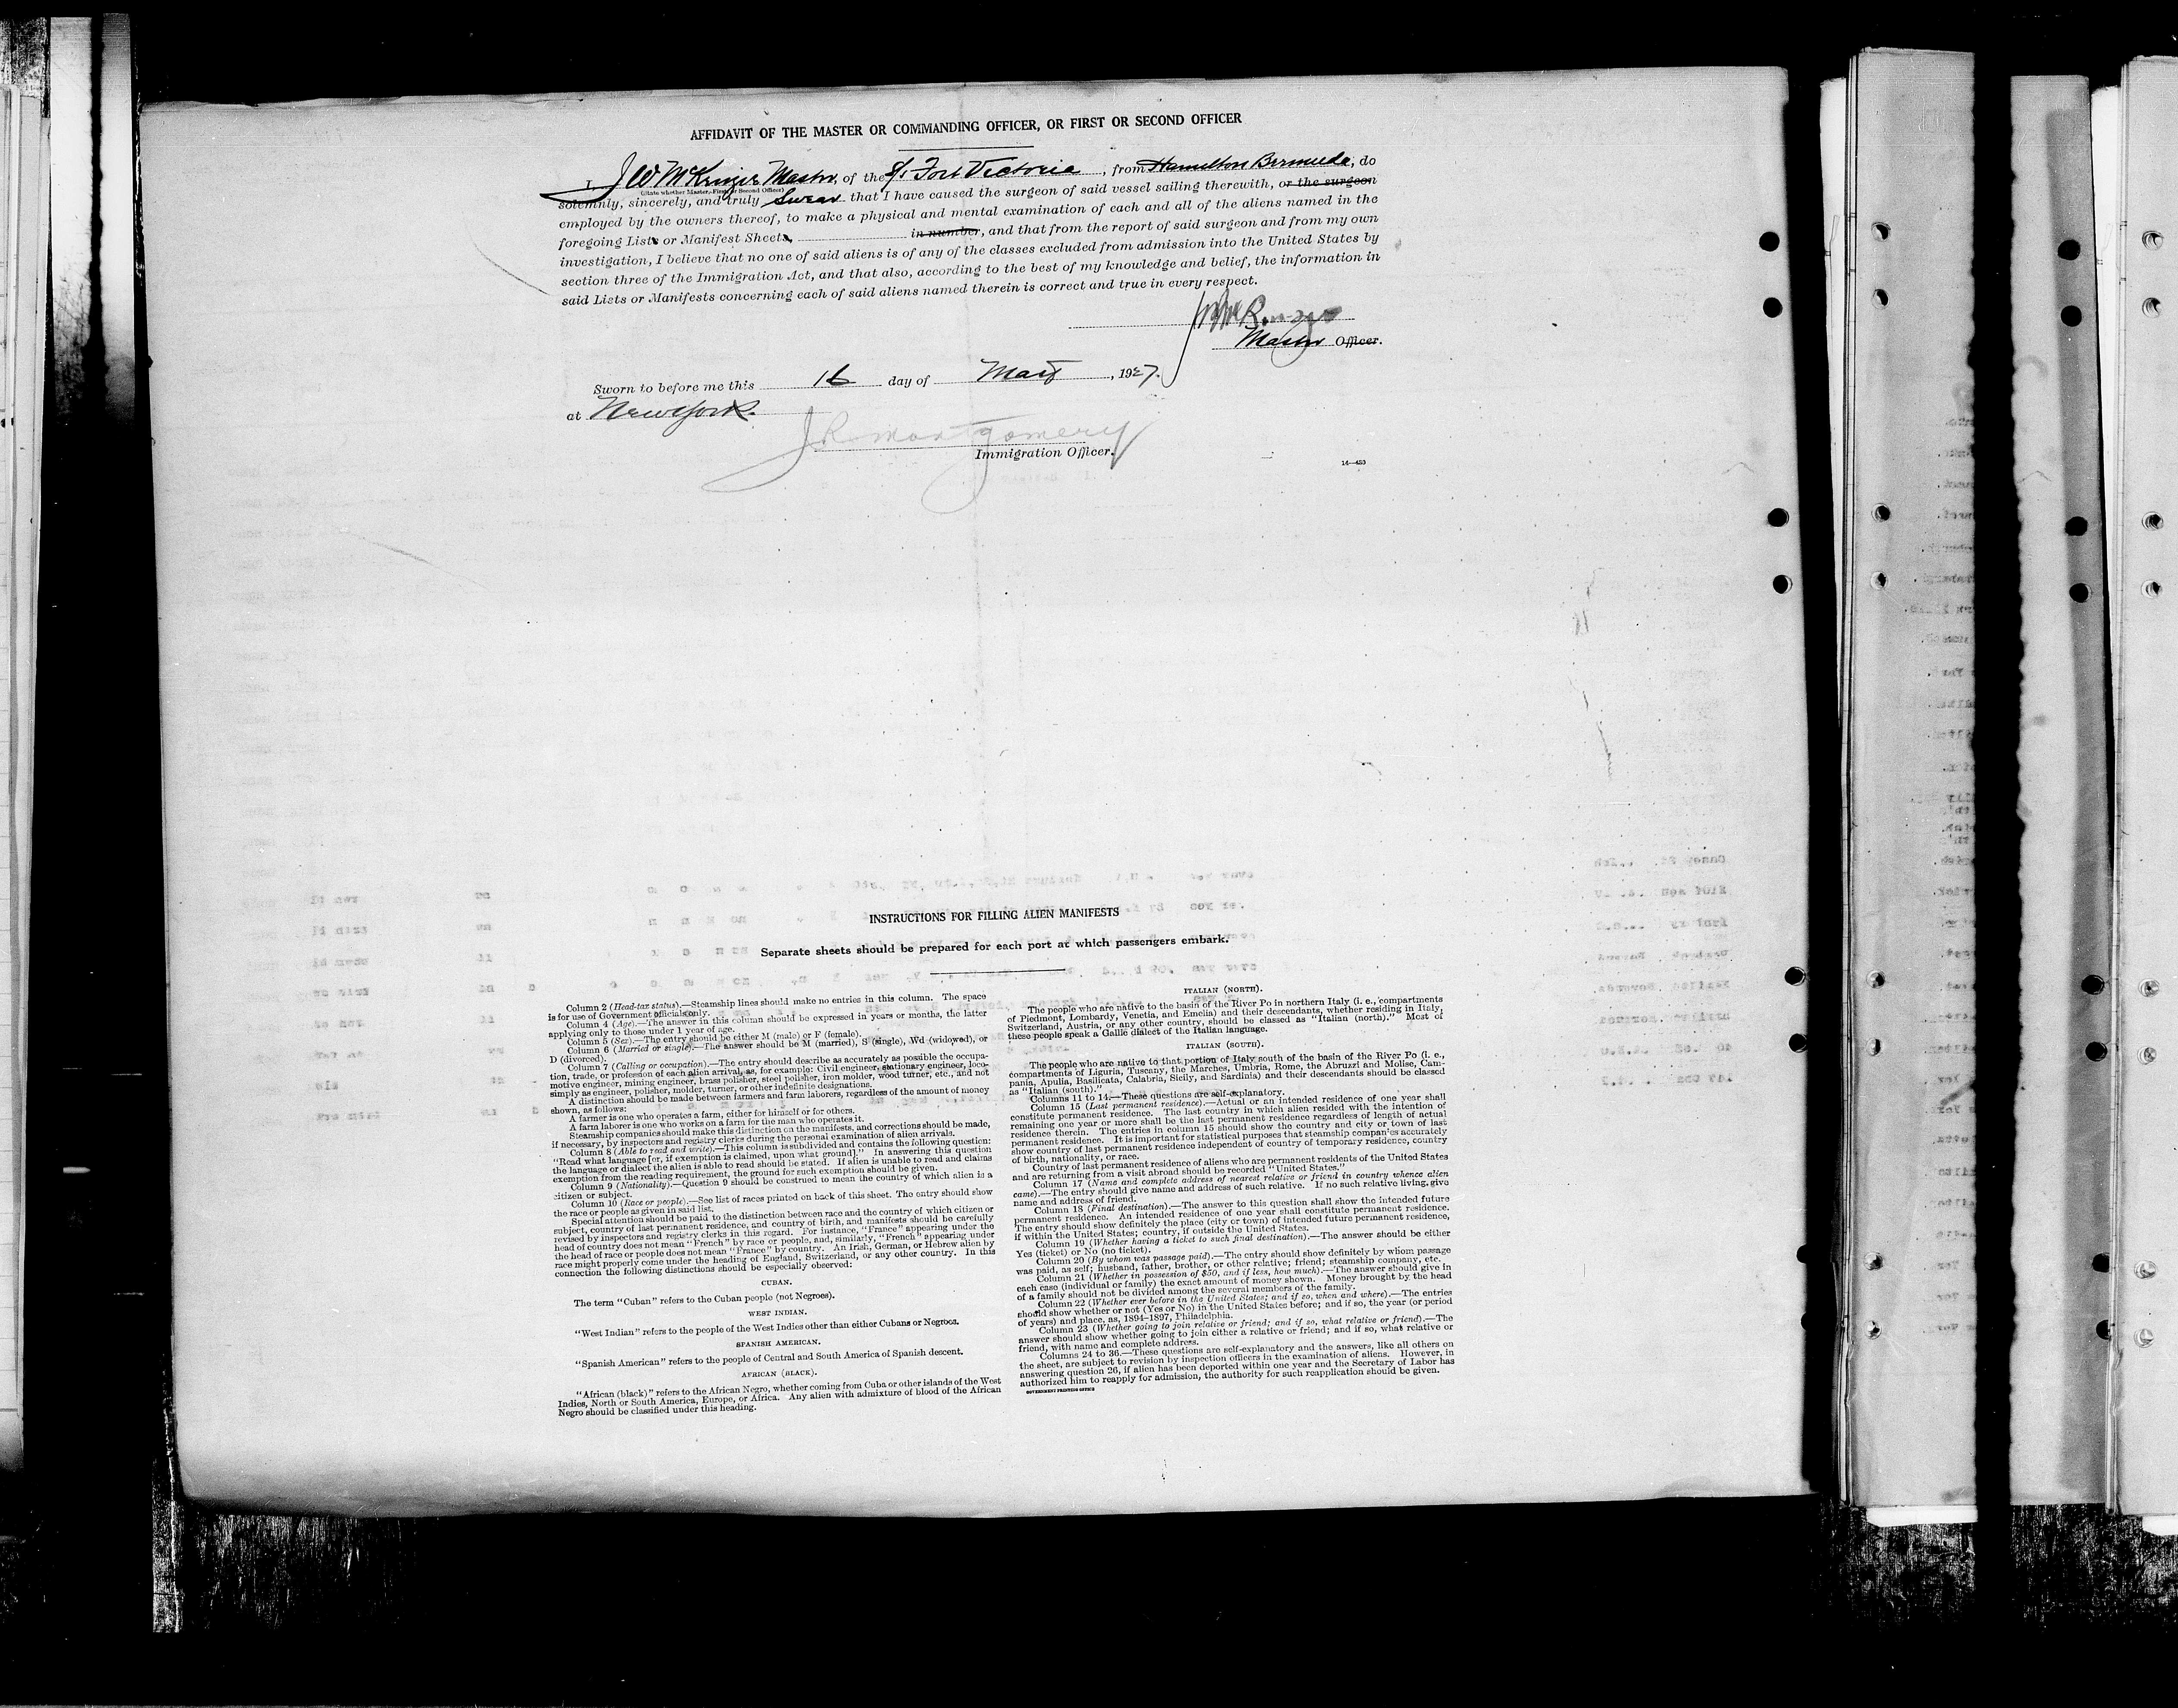 AFFIDAVIT OF THE MASTER OR COMMANDING OFFICER, OR FIRST OR SECOND OFFICER
I, J W McKenzie Master, of the S/S Fort Victoria, from Hamilton Bermuda, do
(State whether Master, First or Second Officer)
solemnly, sincerely, and truly swear that I have caused the surgeon of said vessel sailing therewith, or the surgeon
employed by the owners thereof, to make a physical and mental examination of each and all of the aliens named in the
foregoing Lists or Manifest Sheets, in number, and that from the report of said surgeon and from my own
investigation, I believe that no one of said aliens is of any of the classes excluded from admission into the United States by
section three of the Immigration Act, and that also, according to the best of my knowledge and belief, the information in
said Lists or Manifests concerning each of said aliens named therein is correct and true in every respect.
Master Officer.
Sworn to before me this 16 day of May, 1927.
at New York.
J R Montgomery
Immigration Officer.
14—453
INSTRUCTIONS FOR FILLING ALIEN MANIFESTS
Separate sheets should be prepared for each port at which passengers embark.
Column 2 (Head-tax status).—Steamship lines should make no entries in this column. The space
is for use of Government officials only.
Column 4 (Age).—The answer in this column should be expressed in years or months, the latter
applying only to those under 1 year of age.
Column 5 (Sex).—The entry should be either M (male) or F (female).
Column 6 (Married or single).—The answer should be M (married), S (single), Wd (widowed), or
D (divorced).
Column 7 (Calling or occupation).—The entry should describe as accurately as possible the occupa-
tion, trade, or profession of each alien arrival, as, for example: Civil engineer, stationary engineer, loco-
motive engineer, mining engineer, brass polisher, steel polisher, iron molder, wood turner, etc., and not
simply as engineer, polisher, molder, turner, or other indefinite designations.
A distinction should be made between farmers and farm laborers, regardless of the amount of money
shown, as follows:
A farmer is one who operates a farm, either for himself or for others.
A farm laborer is one who works on a farm for the man who operates it.
Steamship companies should make this distinction on the manifests, and corrections should be made,
if necessary, by inspectors and registry clerks during the personal examination of alien arrivals.
Column 8 (Able to read and write).—This column is subdivided and contains the following question:
"Read what language [or, if exemption is claimed, upon what ground]." In answering this question
the language or dialect the alien is able to read should be stated. If alien is unable to read and claims
exemption from the reading requirement, the ground for such exemption should be given.
Column 9 (Nationality).—Question 9 should be construed to mean the country of which alien is a
citizen or subject.
Column 10 (Race or people).—See list of races printed on back of this sheet. The entry should show
the race or people as given in said list.
Special attention should be paid to the distinction between race and the country of which citizen or
subject, country of last permanent residence, and country of birth, and manifests should be carefully
revised by inspectors and registry clerks in this regard. For instance, "France" appearing under the
head of country does not mean "French" by race or people, and, similarly, "French" appearing under
the head of race or people does not mean "France" by country. An Irish, German, or Hebrew alien by
race might properly come under the heading of England, Switzerland, or any other country. In this
connection the following distinctions should be especially observed:
CUBAN.
The term "Cuban" refers to the Cuban people (not Negroes).
WEST INDIAN.
"West Indian" refers to the people of the West Indies other than either Cubans or Negroes.
SPANISH AMERICAN.
"Spanish American" refers to the people of Central and South America of Spanish descent.
AFRICAN (BLACK).
"African (black)" refers to the African Negro, whether coming from Cuba or other islands of the West
Indies, North or South America, Europe, or Africa. Any alien with admixture of blood of the African
Negro should be classified under this heading.
ITALIAN (NORTH).
The people who are native to the basin of the River Po in northern Italy (i. e., compartments
of Piedmont, Lombardy, Venetia, and Emelia) and their descendants, whether residing in Italy,
Switzerland, Austria, or any other country, should be classed as "Italian (north)." Most of
these people speak a Gallic dialect of the Italian language.
ITALIAN (SOUTH).
The people who are native to that portion of Italy south of the basin of the River Po (i. e.,
compartments of Liguria, Tuscany, the Marches, Umbria, Rome, the Abruzzi and Molise, Cam-
pania, Apulia, Basilicata, Calabria, Sicily, and Sardinia) and their descendants should be classed
as "Italian (south)."
Columns 11 to 14.—These questions are self-explanatory.
Column 15 (Last permanent residence).—Actual or an intended residence of one year shall
constitute permanent residence. The last country in which alien resided with the intention of
remaining one year or more shall be the last permanent residence regardless of length of actual
residence therein. The entries in column 15 should show the country and city or town of last
permanent residence. It is important for statistical purposes that steamship companies accurately
show country of last permanent residence independent of country of temporary residence, country
of birth, nationality, or race.
Country of last permanent residence of aliens who are permanent residents of the United States
and are returning from a visit abroad should be recorded "United States."
Column 17 (Name and complete address of nearest relative or friend in country whence alien
came).—The entry should give name and address of such relative. If no such relative living, give
name and address of friend.
Column 18 (Final destination).—The answer to this question shall show the intended future
permanent residence. An intended residence of one year shall constitute permanent residence.
The entry should show definitely the place (city or town) of intended future permanent residence,
if within the United States; country, if outside the United States.
Column 19 (Whether having a ticket to such final destination).—The answer should be either
Yes (ticket) or No (no ticket).
Column 20 (By whom was passage paid).—The entry should show definitely by whom passage
was paid, as self; husband, father, brother, or other relative; friend; steamship company, etc.
Column 21 (Whether in possession of $50, and if less, how much).—The answer should give in
each case (individual or family) the exact amount of money shown. Money brought by the head
of a family should not be divided among the several members of the family.
Column 22 (Whether ever before in the United States; and if so, when and where).—The entries
should show whether or not (Yes or No) in the United States before; and if so, the year (or period
of years) and place, as, 1894-1897, Philadelphia.
Column 23 (Whether going to join relative or friend; and if so, what relative or friend).—The
answer should show whether going to join either a relative or friend; and if so, what relative or
friend, with name and complete address.
Columns 24 to 36.—These questions are self-explanatory and the answers, like all others on
the sheet, are subject to revision by inspection officers in the examination of aliens. However, in
answering question 26, if alien has been deported within one year and the Secretary of Labor has
authorized him to reapply for admission, the authority for such reapplication should be given.
GOVERNMENT PRINTING OFFICE